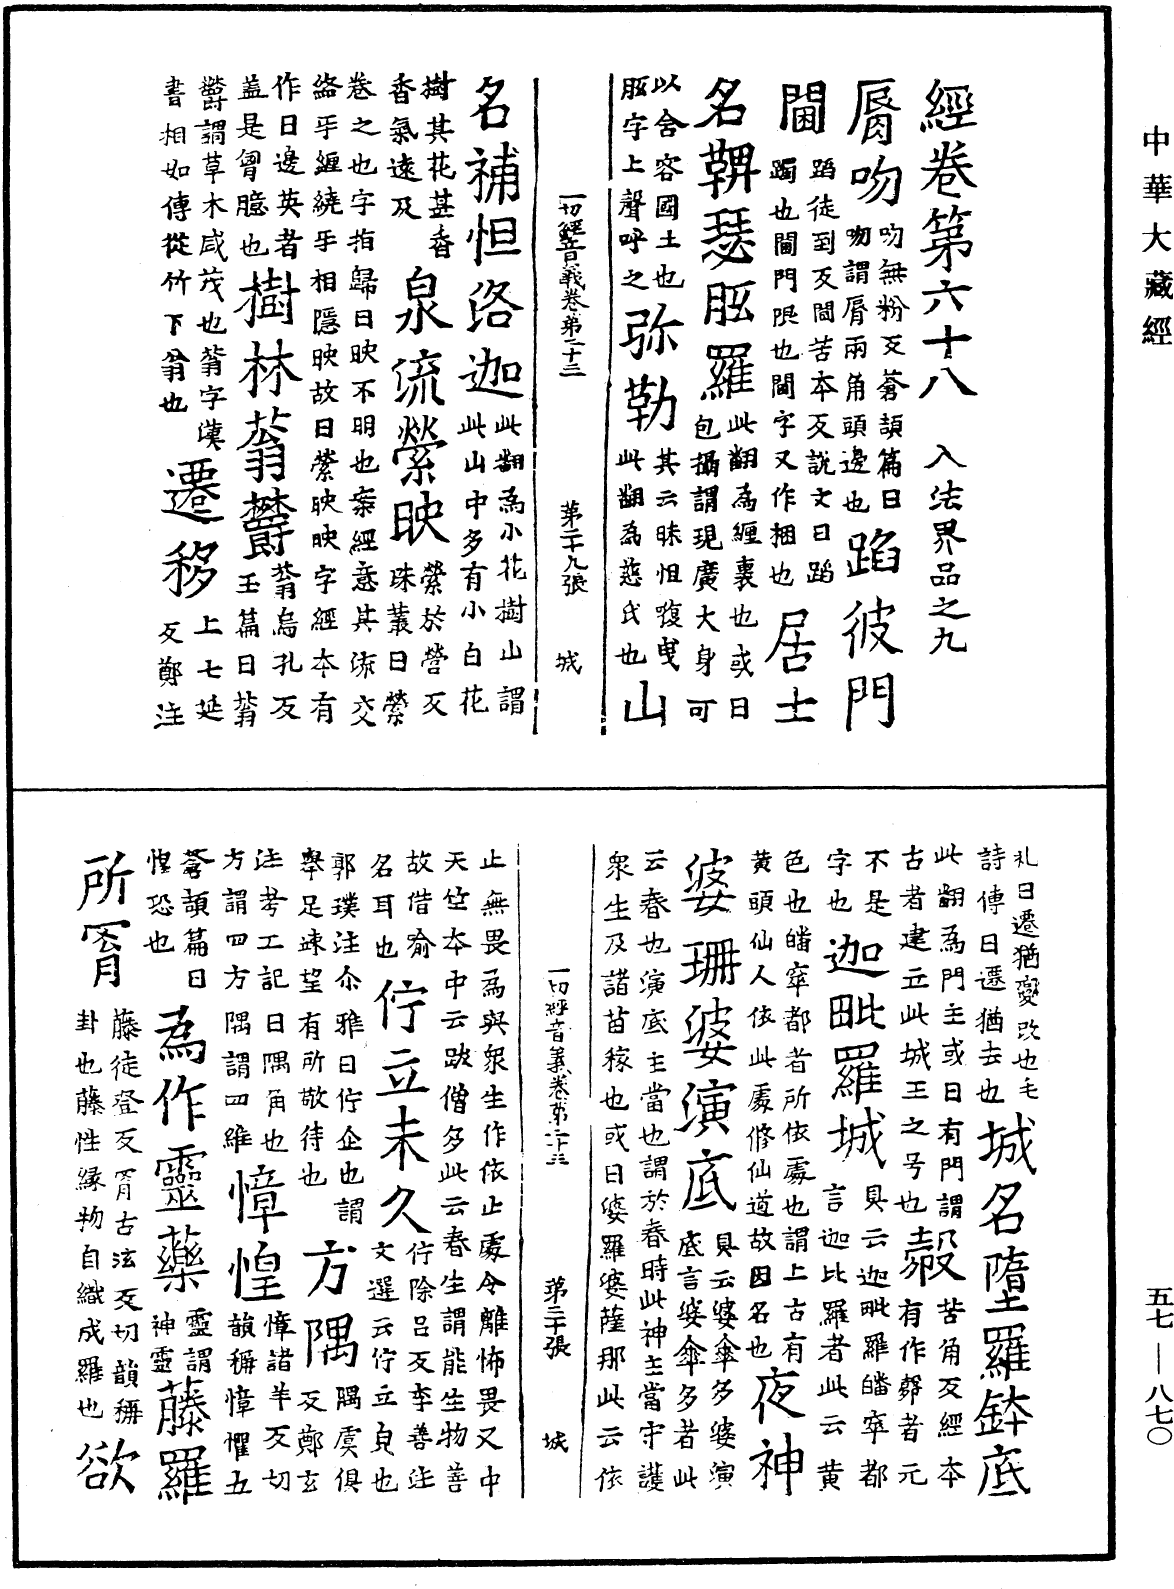 中華大藏經
經卷第六十八　入法界品之九
脣吻 吻無粉反蒼頡篇曰吻謂脣兩角頭邊也 蹈彼門
閫 蹈徒到反閫苦本反說文曰蹈躅也閫門限也閫字又作梱也 居士
名鞞瑟胝羅 此翻為纏裹也或曰包攝謂現廣大身可
以舍容國土也胝字上聲呼之 弥勒 其云昧怛㘁曳此翻為慈氏也 山
一切經音義卷第二十三　第二十九張　城
名補怛洛迦 此翻為小花樹山謂此山中多有小白花
樹其花甚香香氣遠及 泉流縈映 縈於營反珠叢曰縈
卷之也字指歸曰映不明也案經意其流交
絡乎纏繞乎相隱映故曰縈映映字經本有
作日邊英者盖是胷臆也 樹林蓊欝 蓊烏孔反玉篇曰蓊
欝謂草木咸茂也蓊字漢書相如傳從竹下翁也 遷移 上七延反鄭注
礼曰遷猶變改也毛詩傳曰遷猶去也 城名墮羅鉢底
此翻為門主或曰有門謂古者建立此城王之号也 㲉 苦角反經本有作㲉者元
不是字也 迦毗羅城 具云迦毗羅皤窣都言迦比羅者此云黃
色也皤窣都者所依處也謂上古有黃頭仙人依此處修仙道故因名也 夜神
婆珊婆演底 具云婆傘多婆演底言婆傘多者此
云春也演底主當也謂於春時此神主當守護
衆生及諸苗稼也或曰婆羅婆薩那此云依
一切經音義卷第二十三　第三十張　城
止無畏為與衆生作依止處令離怖畏又中
天竺本中云跛僧多此云春生謂能生物善
故借喻名耳也 佇立未久 佇除呂反李善注文選云佇立皃也
郭璞注尒雅曰佇企也謂舉足竦望有所敬待也 方隅 隅虞俱反鄭玄
注考工記曰隅角也方謂四方隅謂四維 慞惶 慞諸羊反切韻稱慞懼五
蒼頡篇曰惶恐也 為作靈藥 靈謂神靈 藤羅
所罥 藤徒登反罥古泫反切韻稱罥卦也藤性緣物自織成羅也 欲
五七—八七〇